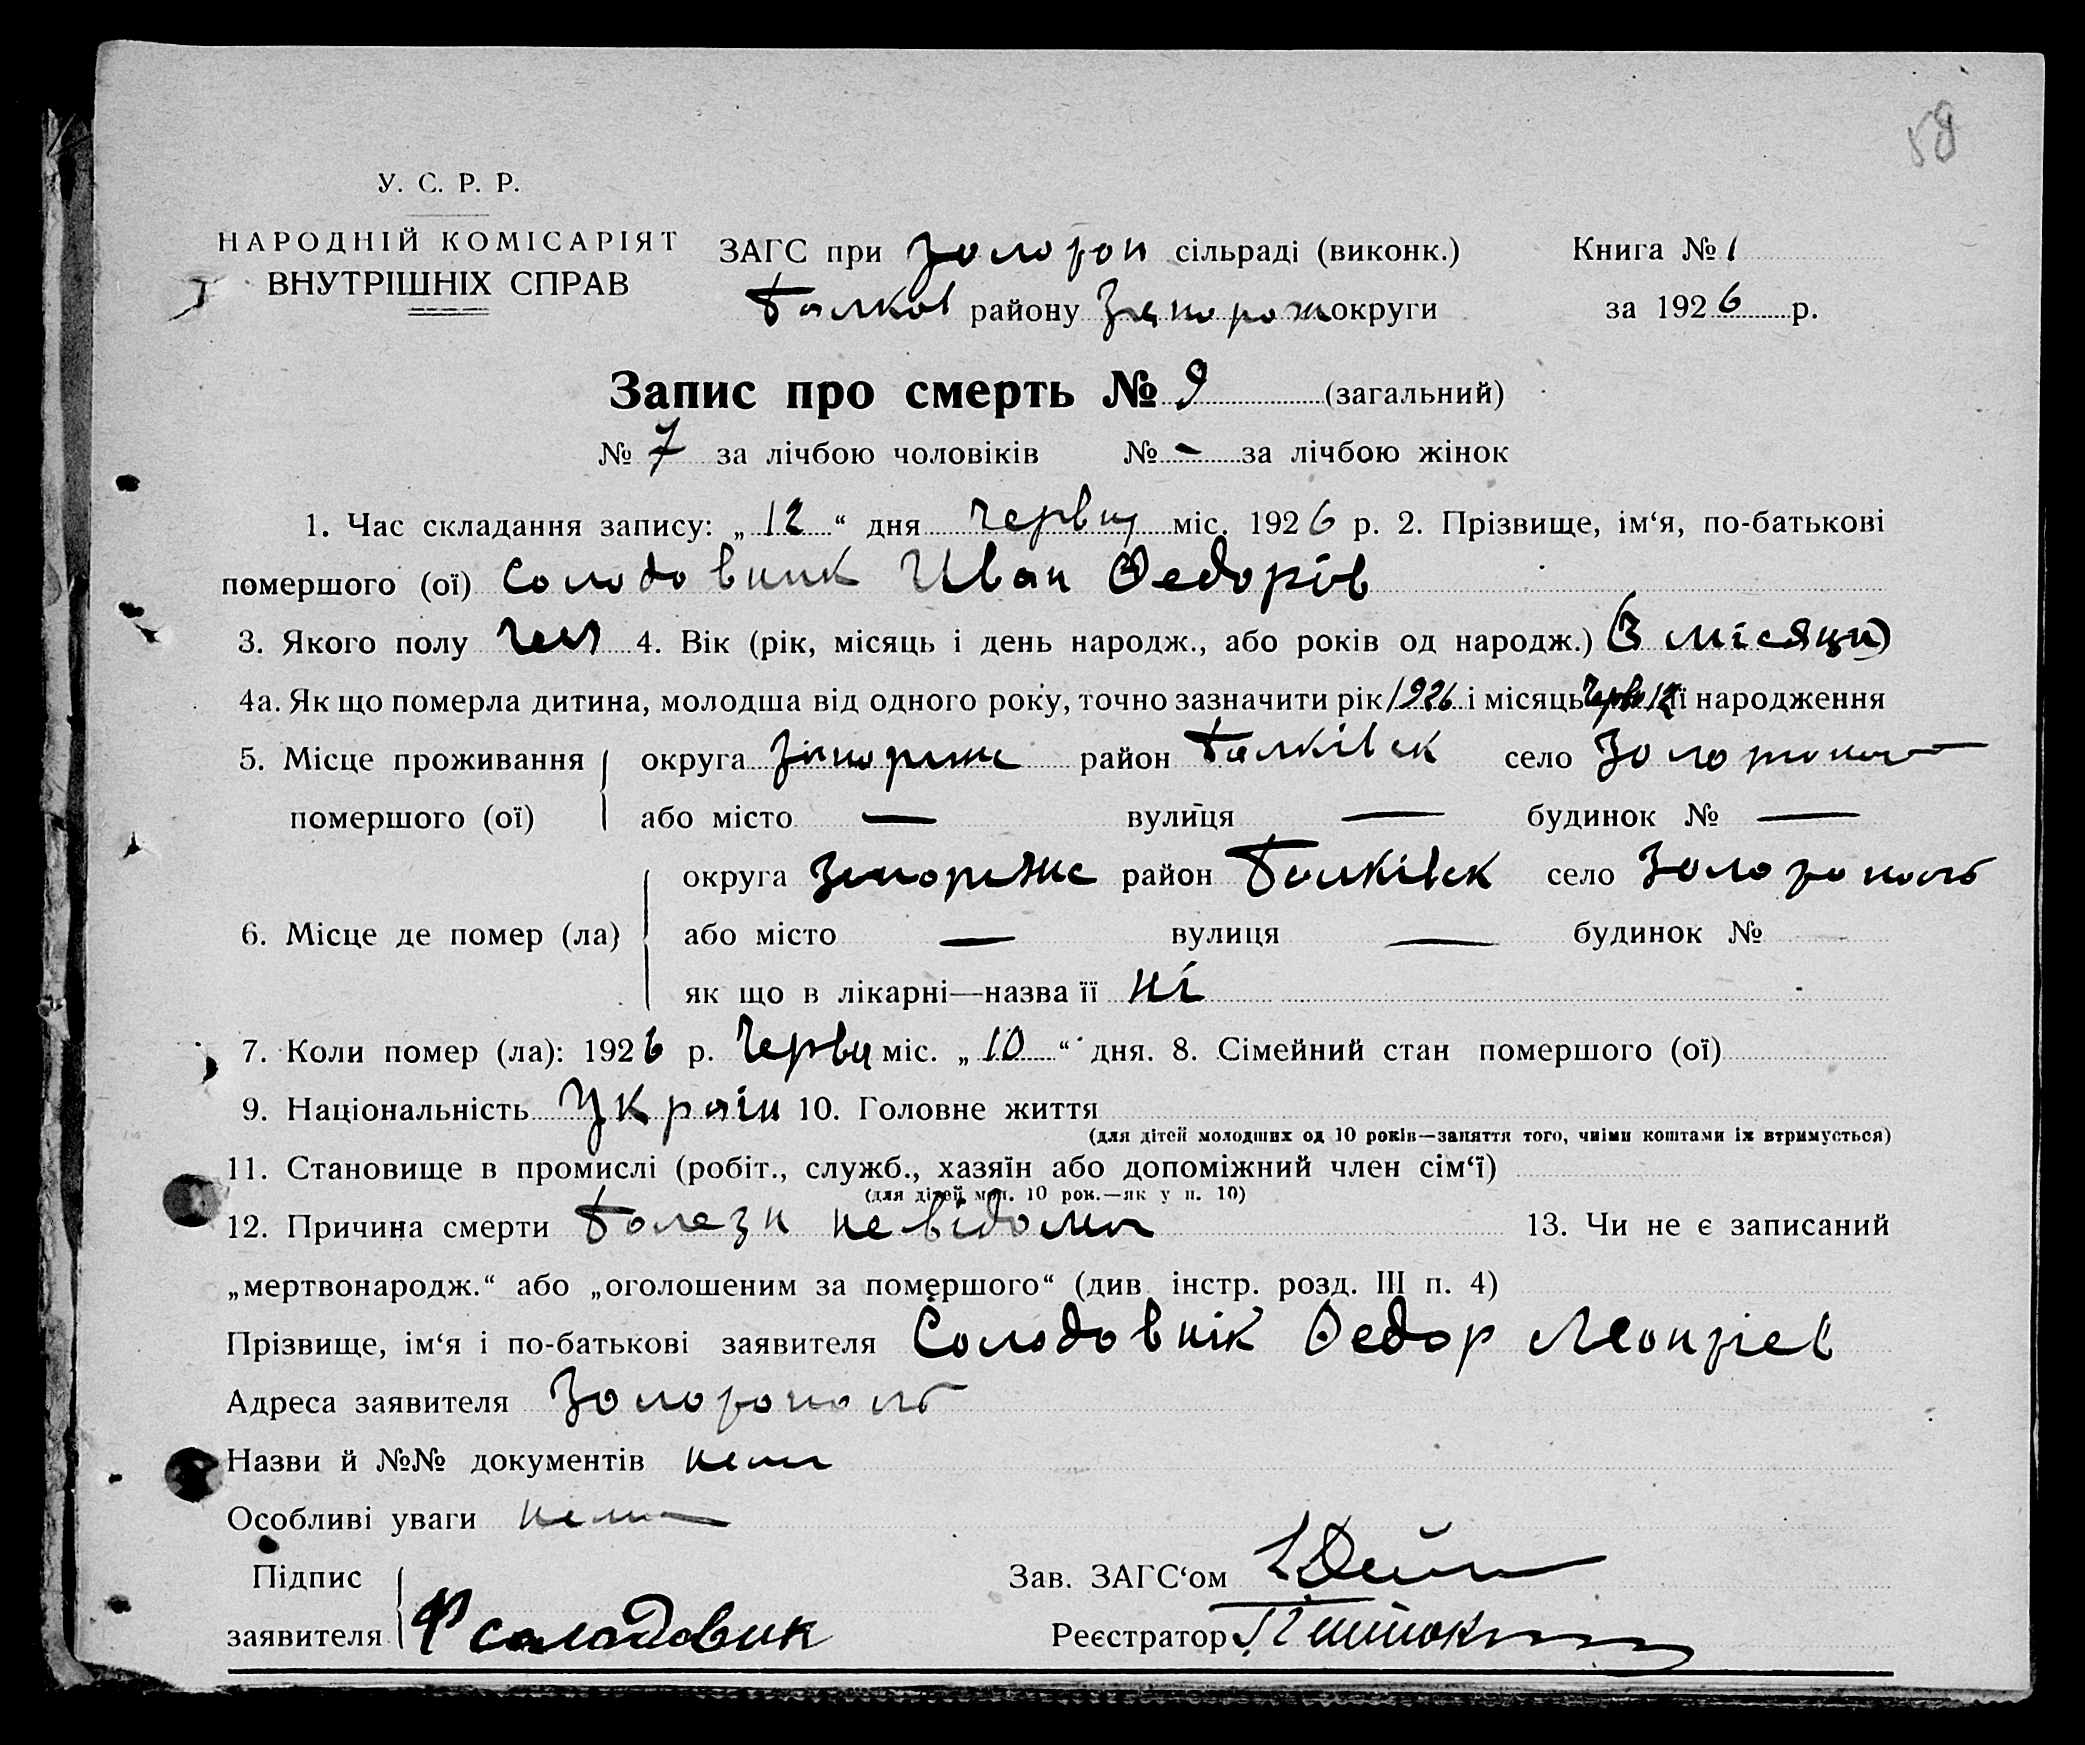 58
У. С. Р. Р.
НАРОДНІЙ КОМІСАРІЯТ
ВНУТРІШНІХ СПРАВ
ЗАГС при Золотоп сільраді (виконк.) Книга № 1
Балков району Запорож округи за 1926 р.
Запис про смерть № 9 (загальний)
№ 7 за лічбою чоловіків № - за лічбою жінок
1. Час складання запису: „12“ дня червця міс. 1926 р. 2. Прізвище, ім‘я, по-батькові
помершого (ої) Солодовник Иван Федорів
3. Якого полу чол 4. Вік (рік, місяць і день народж., або років од народж.) (3 місяци)
4а. Як що померла дитина, молодша від одного року, точно зазначити рік 1926 і місяць її народження
5. Місце проживання округа район Балківск село
помершого (ої) або місто — вулиця — будинок № —
округа Запоріжс район Балківск село Золотополь
6. Місце де помер (ла) або місто — вулиця — будинок №
як що в лікарні—назва її ні
7. Коли помер (ла): 1926 р. Червця міс. „10“ дня. 8. Сімейний стан помершого (ої)
9. Національність Україн 10. Головне життя
(для дітей молодших од 10 років—заняття того, чиїми коштами їх втримується)
11. Становище в промислі (робіт., служб., хазяїн або допоміжний член сім‘ї)
(для дітей мол. 10 рок.—як у п. 10)
12. Причина смерти Болезн невідома 13. Чи не є записаний
„мертвонародж.“ або „оголошеним за помершого“ (див. інстр. розд. III п. 4)
Прізвище, ім‘я і по-батькові заявителя Солодовнік Федор
Адреса заявителя Золотополь
Назви й №№ документів нема
Особливі уваги нема
Підпис Зав. ЗАГС‘ом
заявителя Ф Солодовник Реєстратор